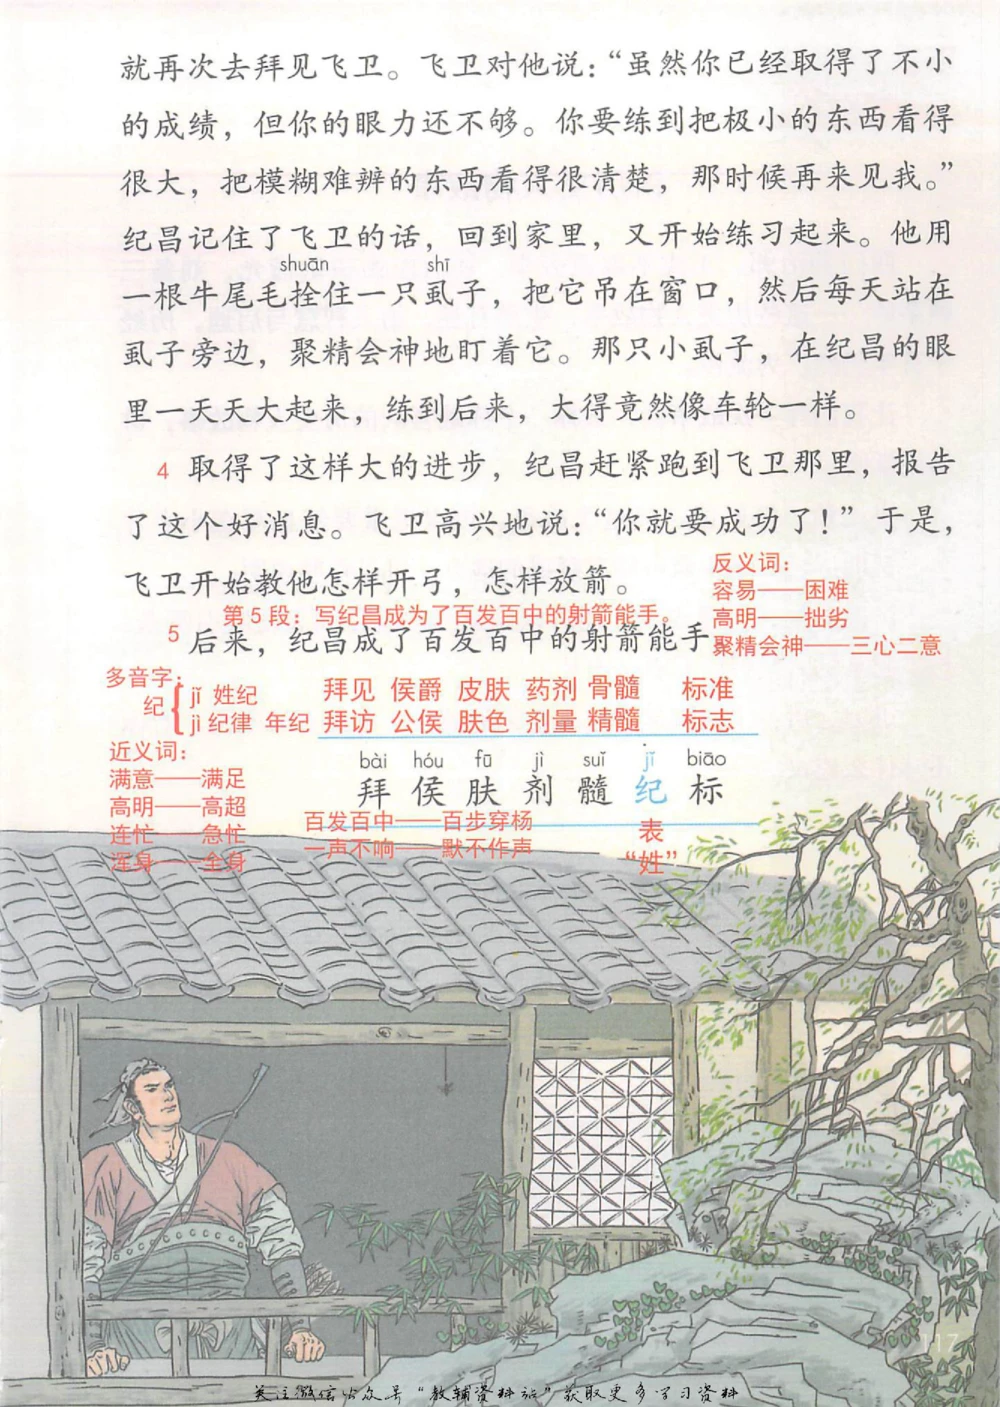 就再次去拜见飞卫。飞卫对他说：“虽然你已经取得了不小
的成绩，但你的眼力还不够。你要练到把极小的东西看得
很大，把模糊难辨的东西看得很清楚，那时候再来见我。”
纪昌记住了飞卫的话，回到家里，又开始练习起来。他用
shuān shī
一根牛尾毛拴住一只虱子，把它吊在窗口，然后每天站在
虱子旁边，聚精会神地盯着它。那只小虱子，在纪昌的眼
里一天天大起来，练到后来，大得竟然像车轮一样。
4 取得了这样大的进步，纪昌赶紧跑到飞卫那里，报告
了这个好消息。飞卫高兴地说：“你就要成功了！”于是，
飞卫开始教他怎样开弓，怎样放箭。
反义词：
容易——困难
高明——拙劣
聚精会神——三心二意
第5段：写纪昌成为了百发百中的射箭能手。
5 后来，纪昌成了百发百中的射箭能手
多音字：
纪 { jǐ 姓纪
jì 纪律 年纪
拜见 侯爵 皮肤 药剂 骨髓 标准
拜访 公侯 肤色 剂量 精髓 标志
bài hóu fū jì suǐ jǐ biāo
拜 侯 肤 剂 髓 纪 标
表
“姓”
近义词：
满意——满足
高明——高超
连忙——急忙
浑身——全身
百发百中——百步穿杨
一声不响——默不作声
17
关注微信公众号“教辅资料站”获取更多学习资料